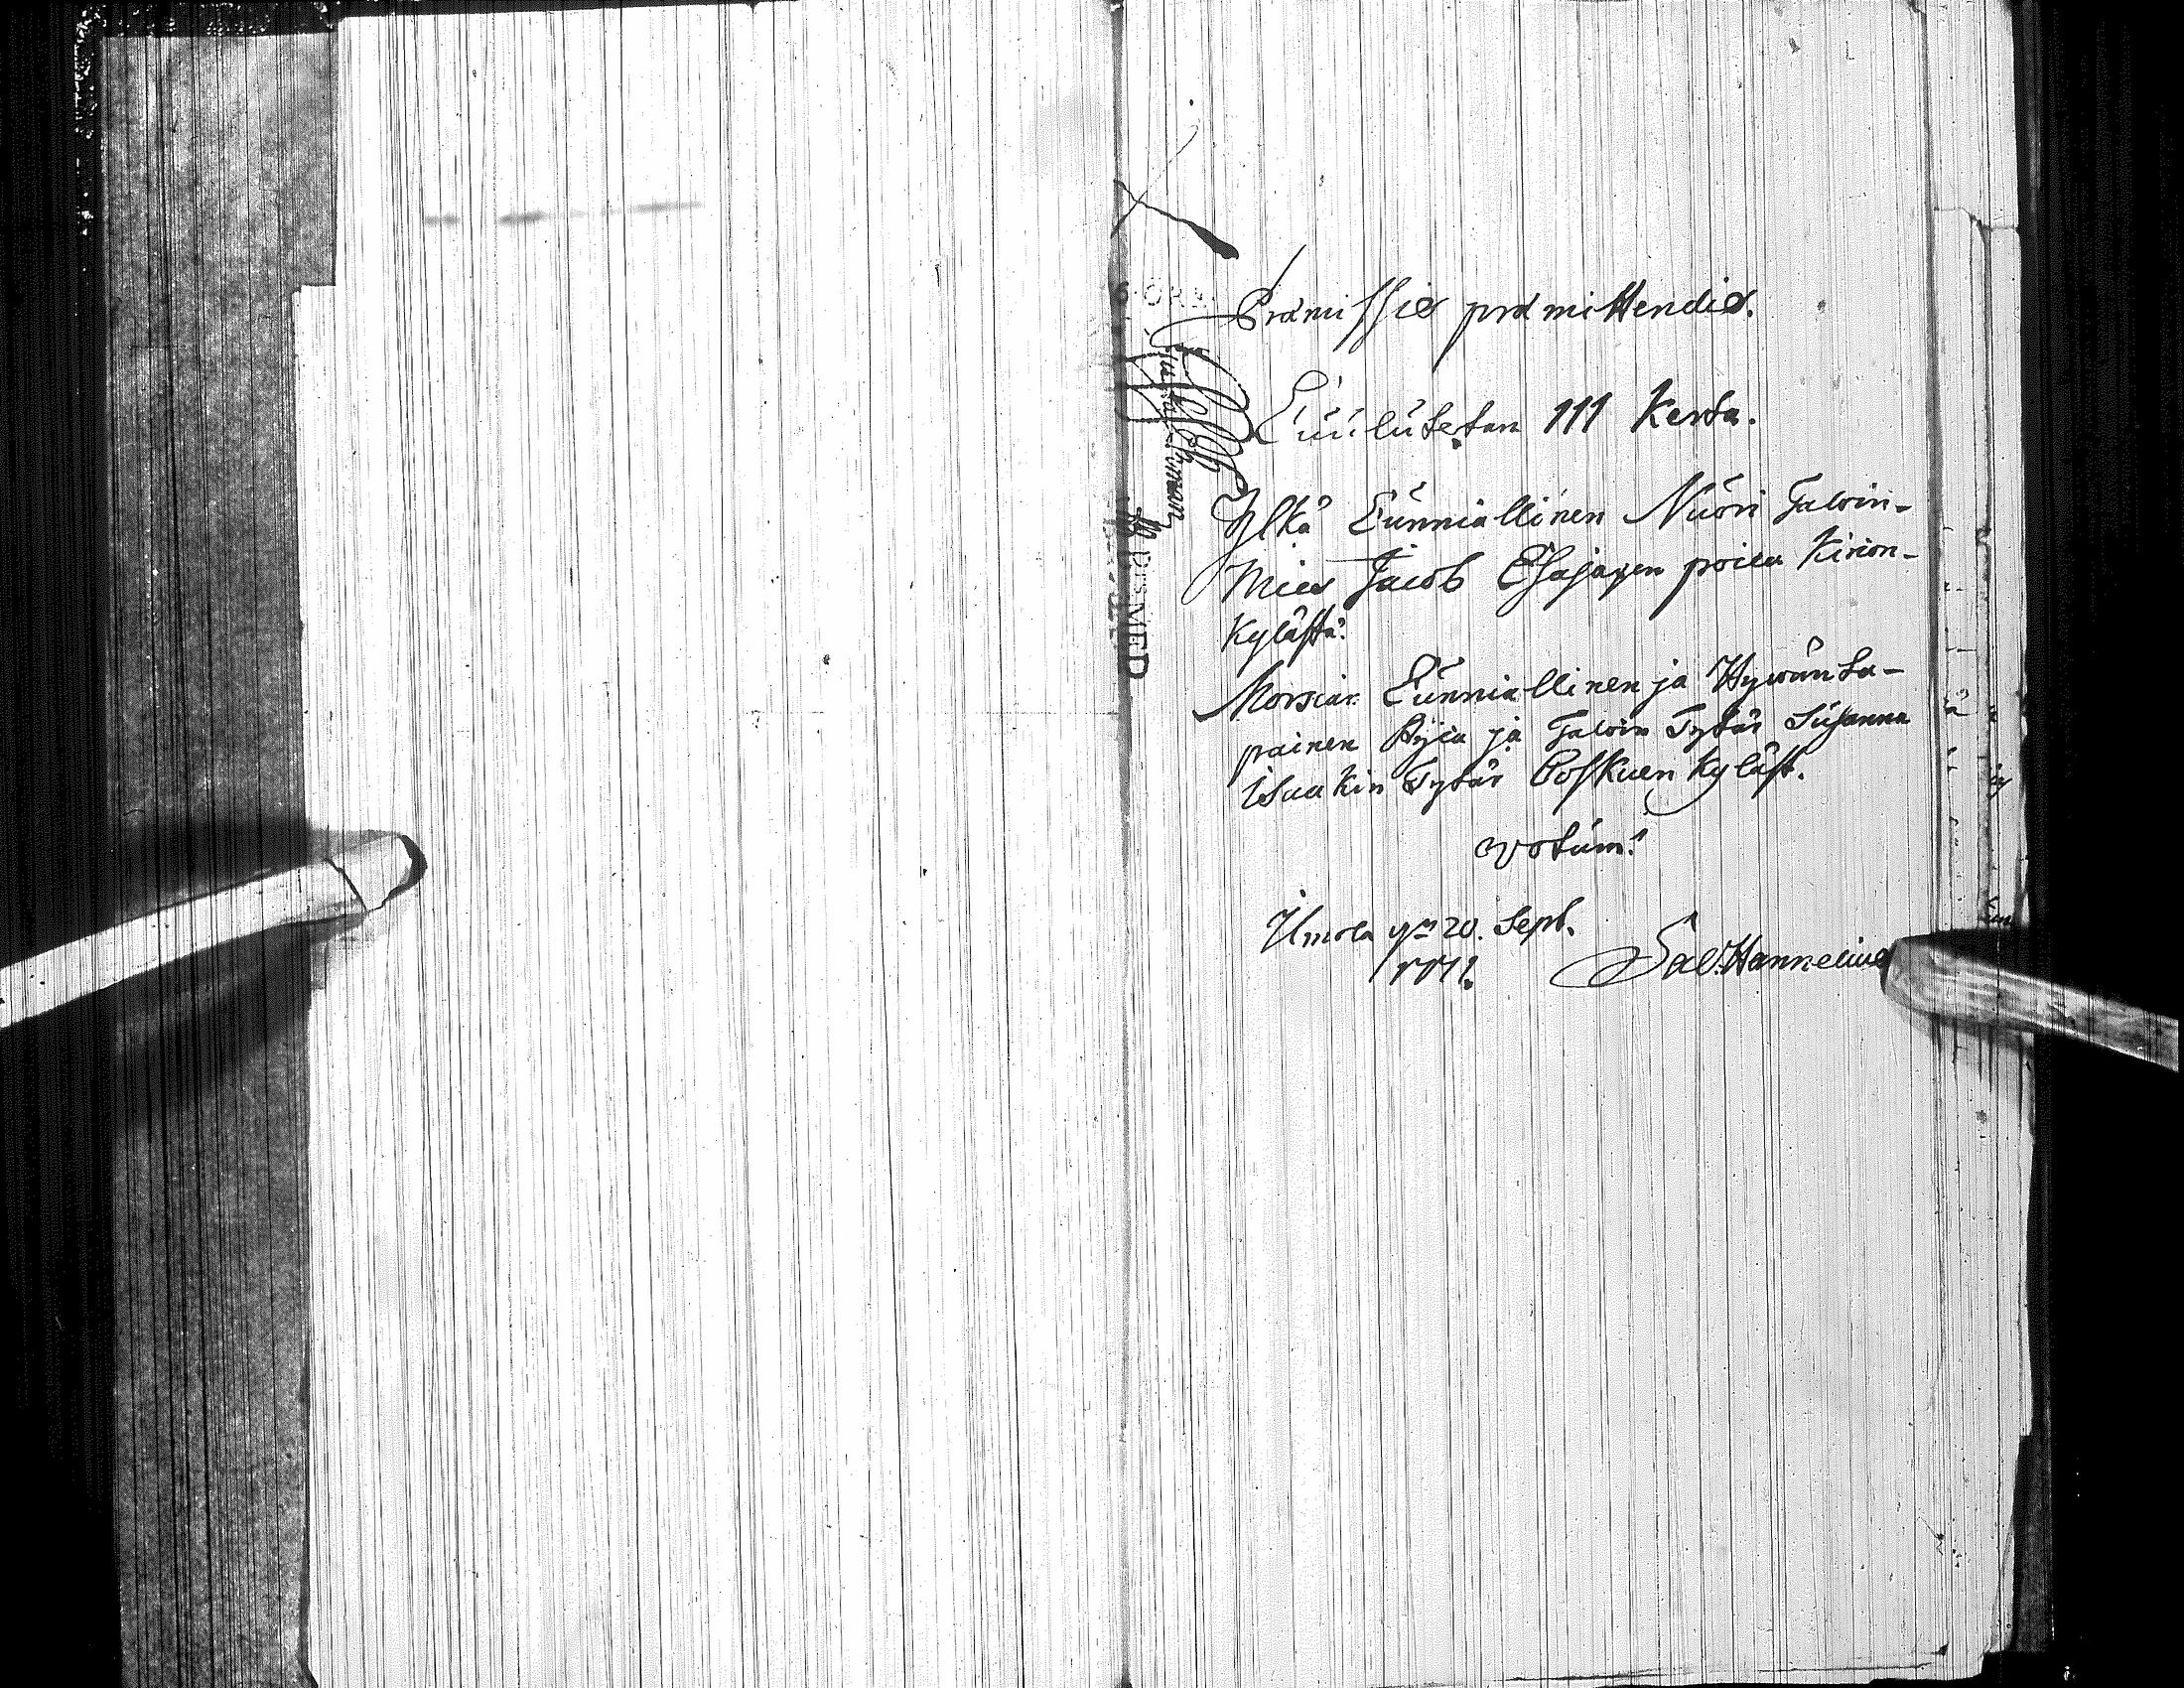 Præmissis præmittendis.
Cuulutetan 111 Kerta.
Ylkä Cunniallinen Nuori Taloin-
Mies Jacob Esajaxen poica Kirion-
Kylästä.
Morsian Cunniallinen ja Hywän ta-
painen Pijca ja Taloin Tytär Susanna
Isaakin Tytär Poskuen Kyläst.
votum.
Sal. Hannelius